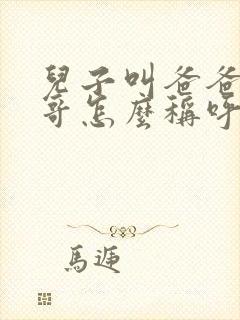 兒子叫爸爸
哥怎麼稱呼
馬迡